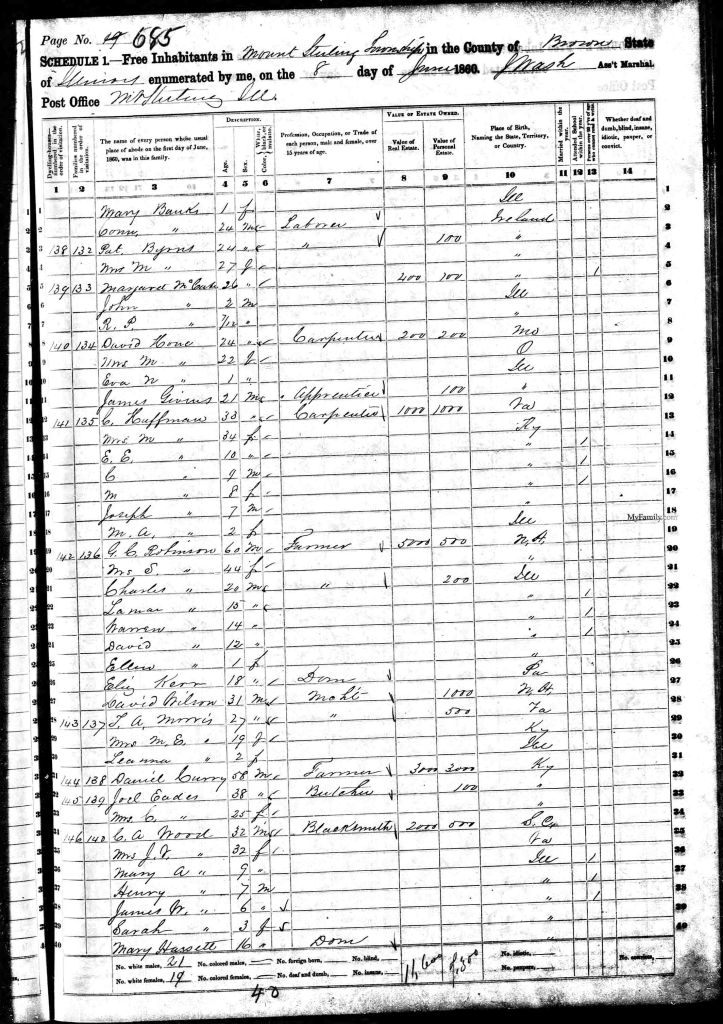 Page No. 19 685
SCHEDULE 1.—Free Inhabitants in Mount Sterling Township in the County of Brown State
of Illinois enumerated by me, on the 8 day of June 1860. J Nash Ass't Marshal.
Post Office Mt Sterling Ill.
DESCRIPTION. VALUE OF ESTATE OWNED.
Dwelling-houses—numbered in the order of visitation. Families numbered in the order of visitation. The name of every person whose usual place of abode on the first day of June, 1860, was in this family. Age. Sex. Color, Profession, Occupation, or Trade of each person, male and female, over 15 years of age. Value of Real Estate. Value of Personal Estate. Place of Birth, Naming the State, Territory, or Country. Married within the year. Attended School within the year. Whether deaf and dumb, blind, insane, idiotic, pauper, or convict.
1 2 3 4 5 6 7 8 9 10 11 12 13 14
1 Mary Banks 1 f Ill 1
2 " 24 m Laborer Ireland 2
3 138 132 Pat. Byrns 24 " " 100 " 3
4 Mrs M " 27 f " 4
5 139 133 Margaret 26 " 400 100 " 1 5
6 John " 2 m Ill 6
7 R. P. " 7/12 " " 7
8 140 134 David 24 " Carpenter 200 200 Mo 8
9 Mrs M " 22 f O 9
10 Eva N " 1 " Ill 10
11 James Givins 21 m Apprentice 100 " 11
12 141 135 C. Huffman 33 " Carpenter 1000 1000 Va 12
13 Mrs M " 34 f Ky 13
14 E. E. " 10 " " 1 14
15 C " 9 m " 1 15
16 M " 8 f " 1 16
17 Joseph " 7 m " 17
18 M. A. " 2 f Ill 18
19 142 136 G. C. Robinson 60 m Farmer 5000 500 N. H. 19
20 Mrs S " 44 f " 20
21 Charles " 20 m " 200 Ill 21
22 Lamar " 15 " " 1 22
23 Warren " 14 " " 1 23
24 David " 12 " " 1 24
25 Ellen " 1 f " 25
26 Eliz Kerr 18 " Dom Pa 26
27 David Wilson 31 m Mcht 1000 N. H. 27
28 143 137 T. A. Morris 27 " " 500 Va 28
29 Mrs M. E. " 19 f Ky 29
30 Leanna " 2 f Ill 30
31 144 138 Daniel Curry 58 m Farmer 3000 3000 Ky 31
32 145 139 Joel Eades 38 " Butcher 100 " 32
33 Mrs C. " 25 f " 33
34 146 140 C. A Wood 32 m Blacksmith 2000 500 S. Ca 34
35 Mrs J. V. " 32 f Va 35
36 Mary A " 9 " Ill 1 36
37 Henry " 7 m " 1 37
38 James W. " 6 " " 1 38
39 Sarah " 3 f " 39
40 Mary Hassett 16 " Dom " 40
No. white males, 21 No. colored males, No. foreign born, No. blind, No. idiotic, No. convicts,
No. white females, 19 No. colored females, No. deaf and dumb, No. insane, No. paupers,
40
MyFamily.com